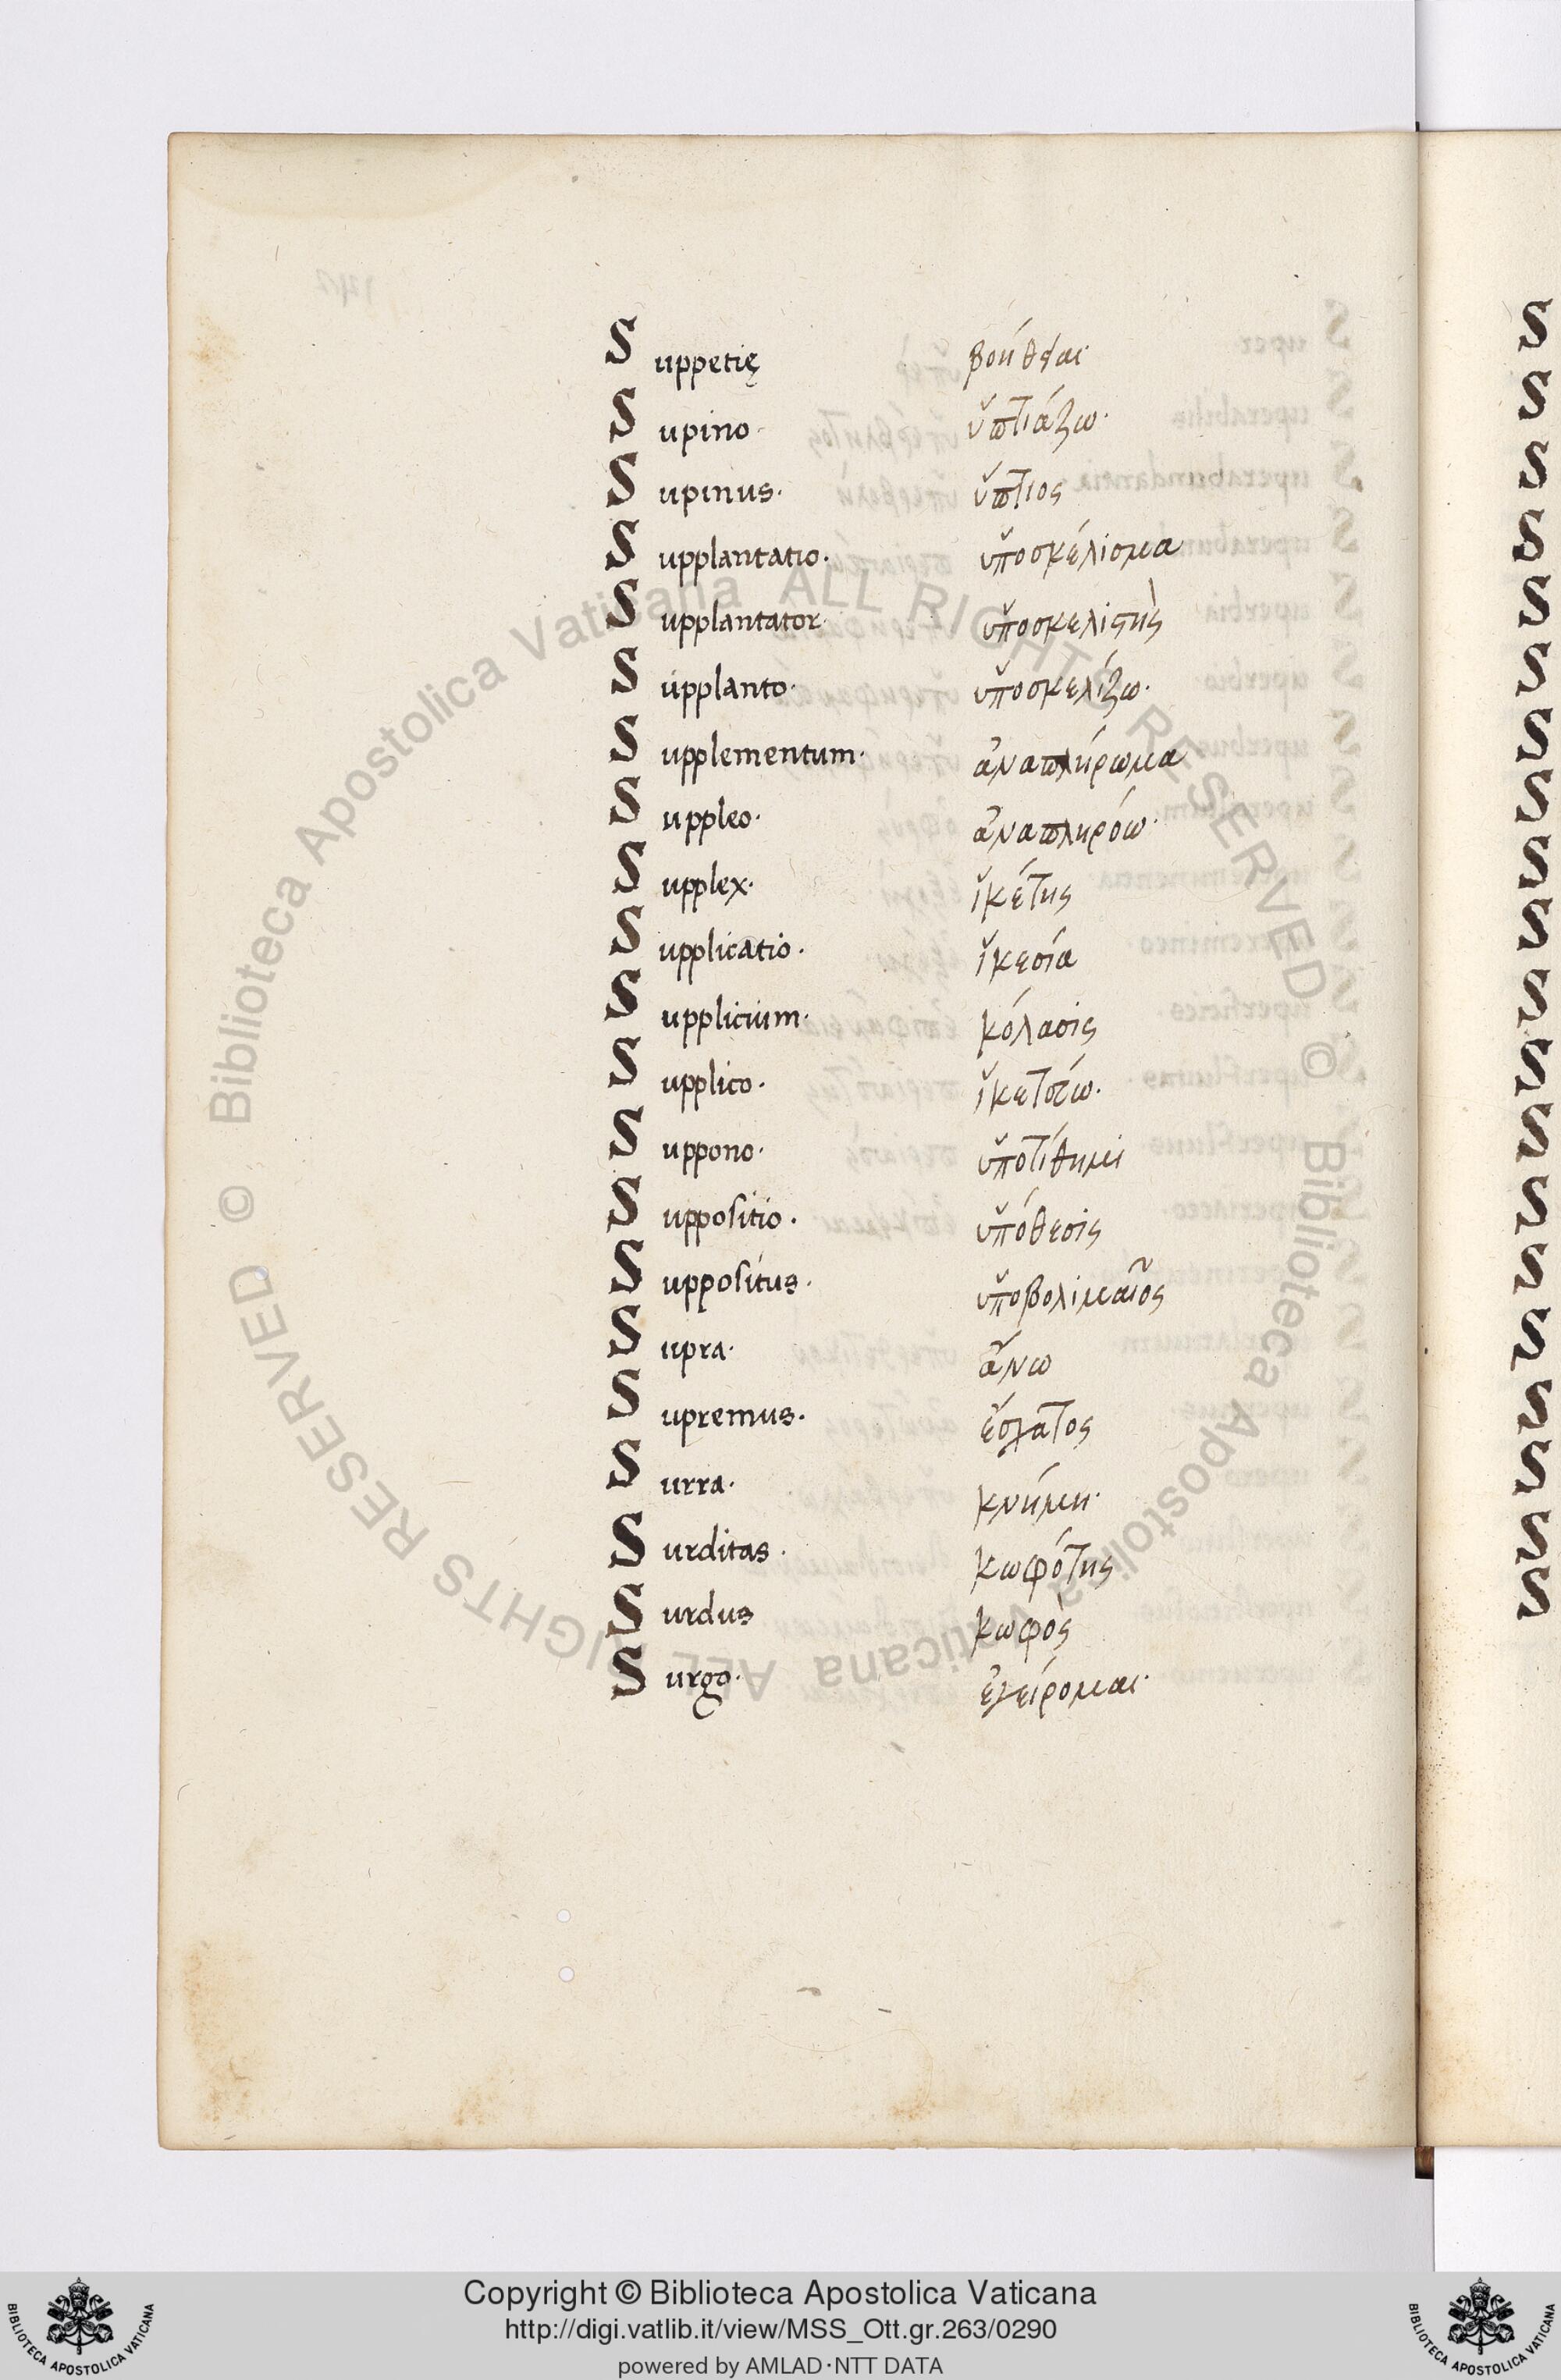 Suppetię βοήθειαι
Supino· ὑπτιάζω·
Supinus· ὕπτιος
Supplantatio· ὑποσκέλισμα
Supplantator· ὑποσκελιστὴς
Supplanto· ὑποσκελίζω·
Supplementum· ἀναπλήρωμα
Suppleo· ἀναπληρόω·
Supplex· ἱκέτης
Supplicatio· ἱκεσία
Supplicium· κόλασις
Supplico· ἱκετεύω·
Suppono· ὑποτίθημι
Suppositio· ὑπόθεσις
Suppositus· ὑποβολιμαῖος
Supra· ἄνω
Supremus· ἔσχατος
Surra· κνήμη·
Surditas· κωφότης
Surdus κωφὸς
Surgo· ἐγείρομαι·
© Biblioteca Apostolica Vaticana ALL RIGHTS RESERVED
© Biblioteca Apostolica Vaticana ALL RIGHTS RESERVED
Copyright © Biblioteca Apostolica Vaticana
http://digi.vatlib.it/view/MSS_Ott.gr.263/0290
powered by AMLAD·NTT DATA
BIBLIOTECA APOSTOLICA VATICANA
BIBLIOTECA APOSTOLICA VATICANA